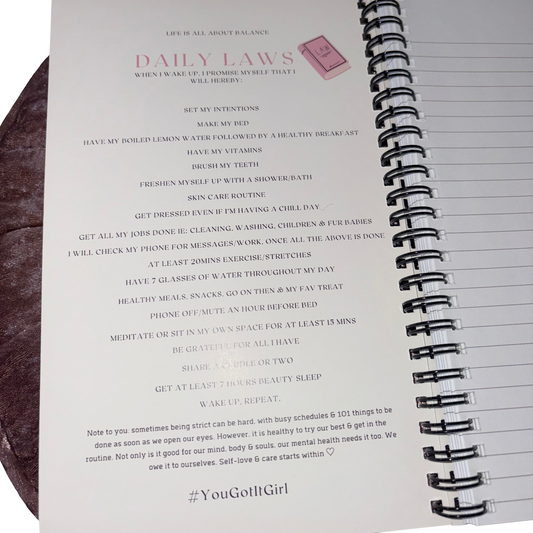 LIFE IS ALL ABOUT BALANCE
DAILY LAWS
LAW
WHEN I WAKE UP, I PROMISE MYSELF THAT I
WILL HEREBY:
SET MY INTENTIONS
MAKE MY BED
HAVE MY BOILED LEMON WATER FOLLOWED BY A HEALTHY BREAKFAST
HAVE MY VITAMINS
BRUSH MY TEETH
FRESHEN MYSELF UP WITH A SHOWER/BATH
SKIN CARE ROUTINE
GET DRESSED EVEN IF I'M HAVING A CHILL DAY
GET ALL MY JOBS DONE IE: CLEANING, WASHING, CHILDREN & FUR BABIES
I WILL CHECK MY PHONE FOR MESSAGES/WORK, ONCE ALL THE ABOVE IS DONE
AT LEAST 20MINS EXERCISE/STRETCHES
HAVE 7 GLASSES OF WATER THROUGHOUT MY DAY
HEALTHY MEALS, SNACKS, GO ON THEN & MY FAV TREAT
PHONE OFF/MUTE AN HOUR BEFORE BED
MEDITATE OR SIT IN MY OWN SPACE FOR AT LEAST 15 MINS
BE GRATEFUL FOR ALL I HAVE
SHARE A CUDDLE OR TWO
GET AT LEAST 7 HOURS BEAUTY SLEEP
WAKE UP, REPEAT.
Note to you: sometimes being strict can be hard, with busy schedules & 101 things to be
done as soon as we open our eyes. However, it is healthy to try our best & get in the
routine. Not only is it good for our mind, body & souls, our mental health needs it too. We
owe it to ourselves. Self-love & care starts within ♡
#YouGotItGirl